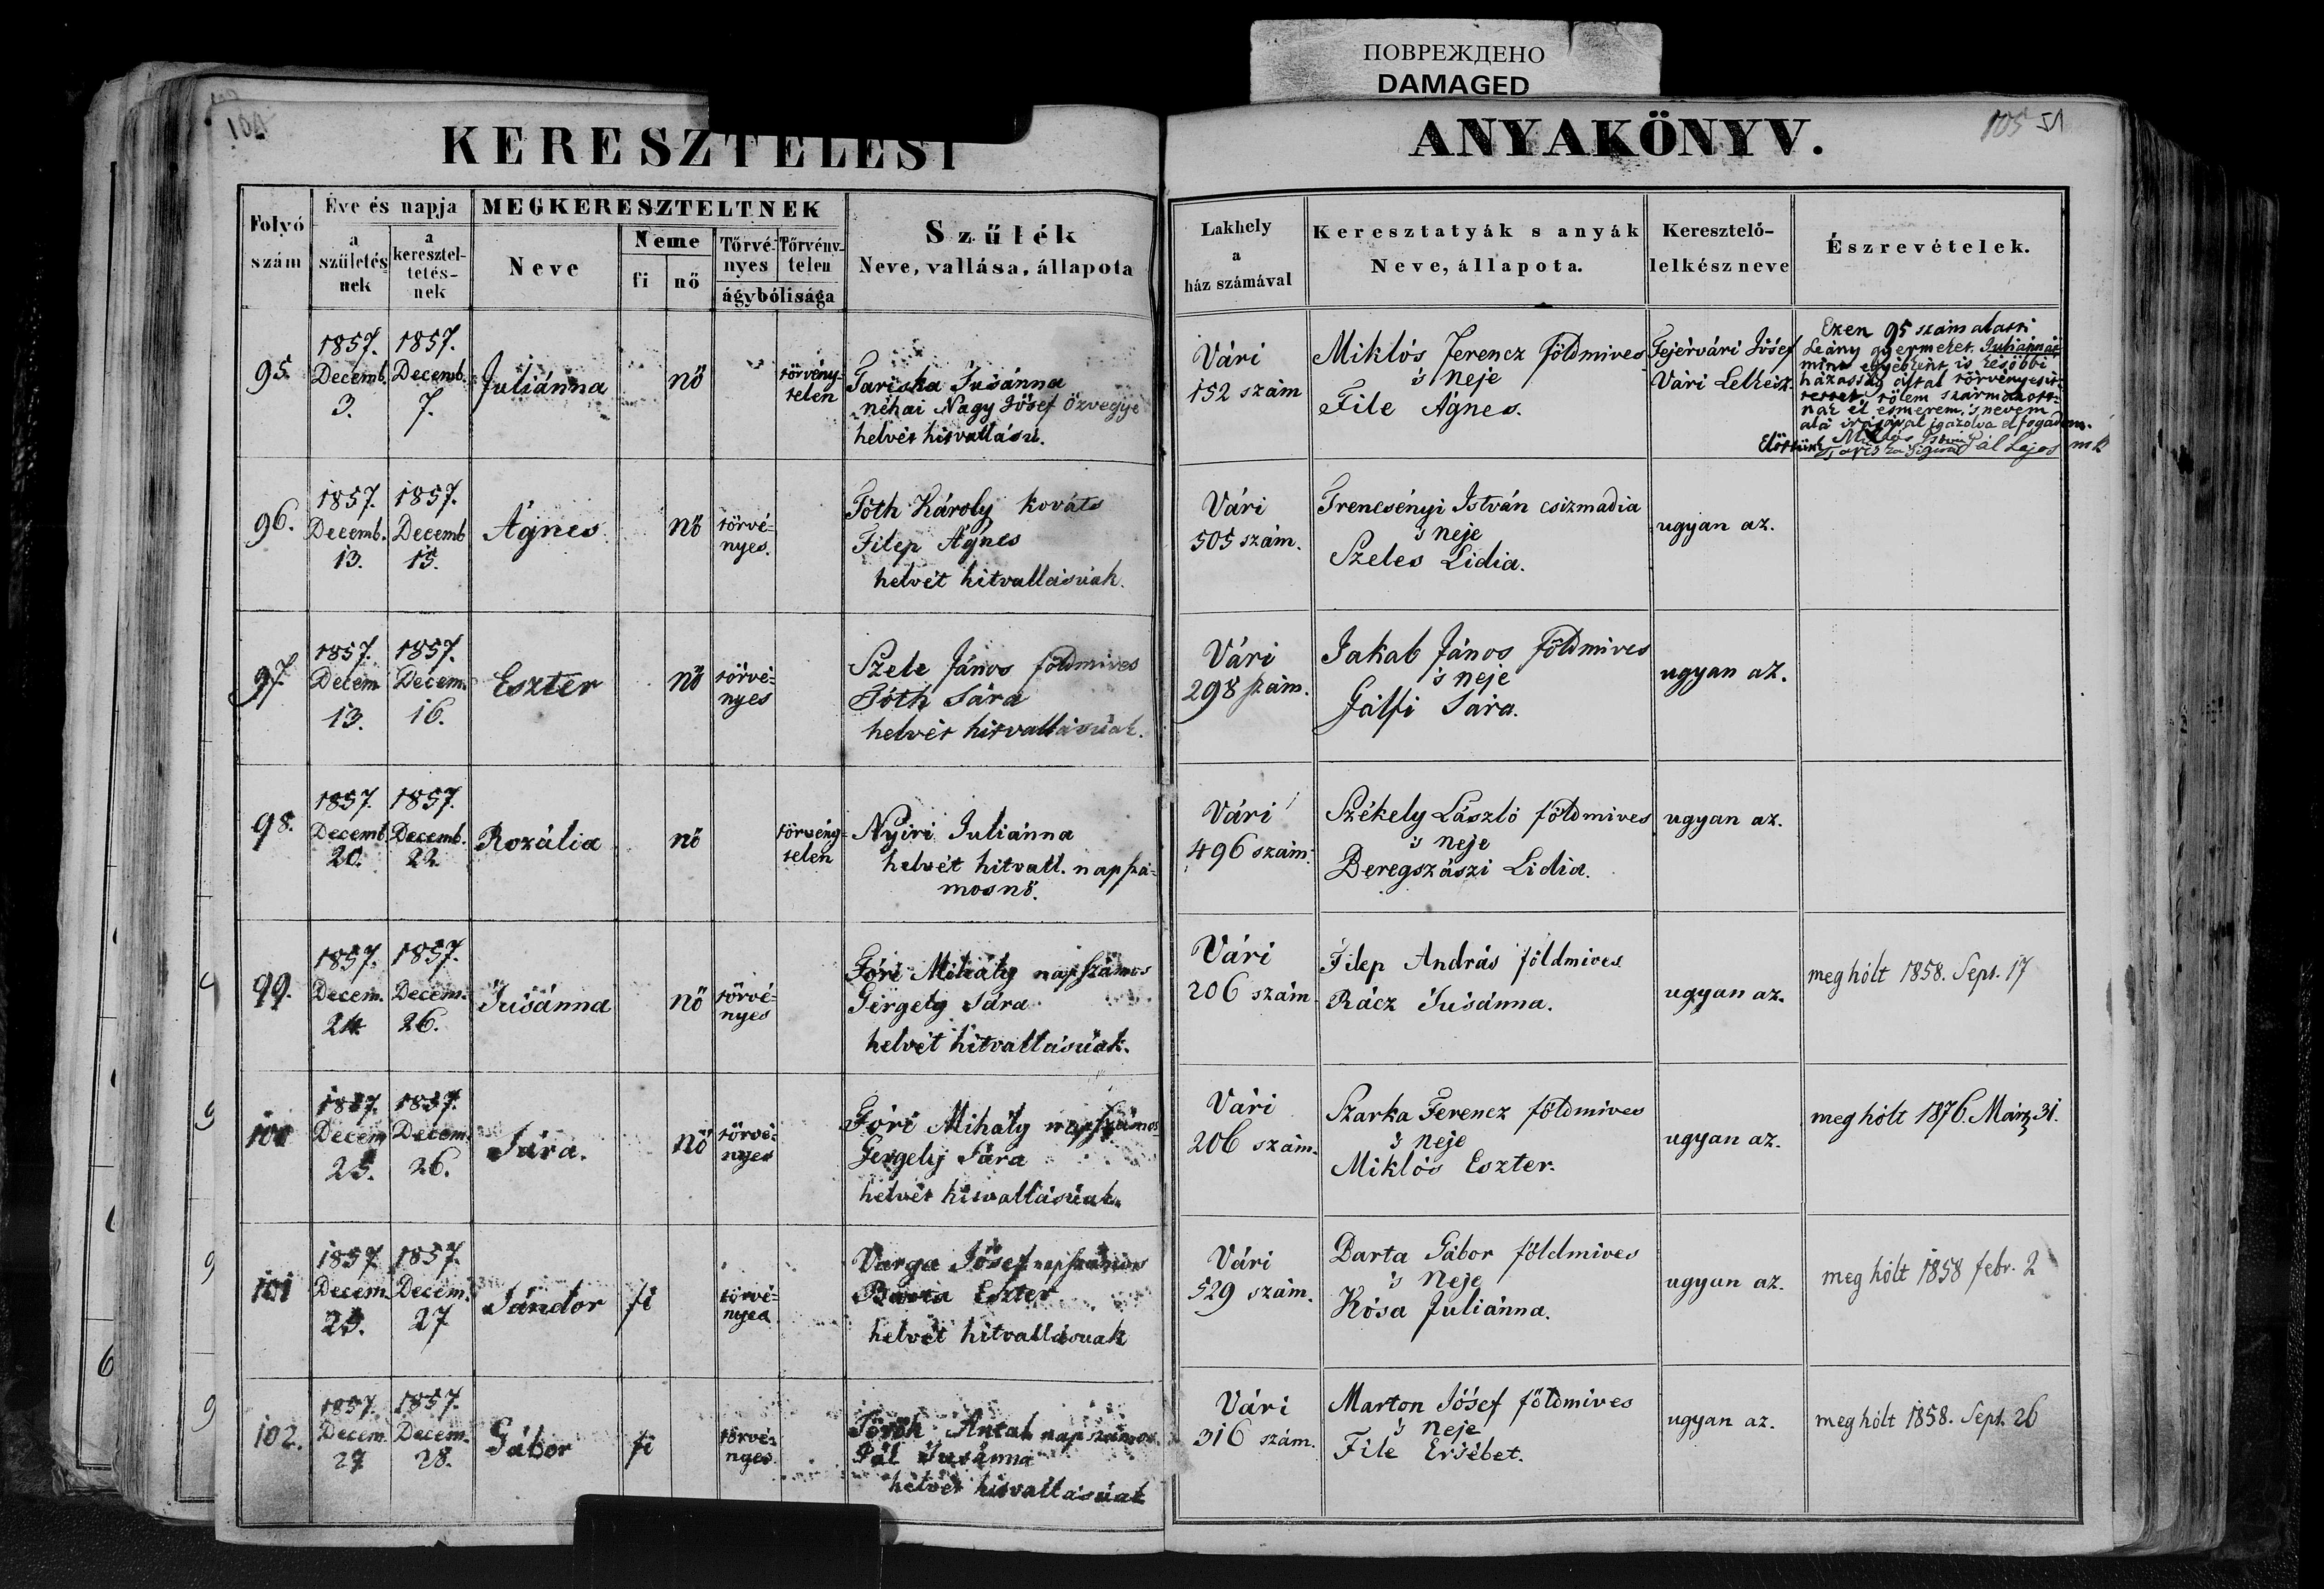 ПОВРЕЖДЕНО
DAMAGED
104
105 51
KERESZTELESI ANYAKÖNYV.
Folyó szám
Éve és napja
a születésnek
a kereszteltetésnek
MEGKERESZTELTNEK
Neve
Neme
fi
nő
Törvényes
Törvénytelen
ágybólisága
Szűlék
Neve, vallása, állapota
Lakhely
a
ház számával
Keresztatyák s anyák
Neve, állapota.
Keresztelő-
lelkész neve
Észrevételek.
95.
1857. Decemb. 3.
1857. Decemb. 7.
Juliánna
nő
törvény-
telen
Susánna
néhai Nagy Jósef özvegye
helvét hitvallásu.
Vári
152 szám
Miklós Ferencz földmives
's neje
File Ágnes.
Fejérvári Jósef
Vári Lelkész
Ezen 95 szám alatti
Leány gyermeket Juliánnát
mint egyébként is későbbi
házasság által törvényesit-
tettet tőlem származott-
nak el esmerem, 's nevem
alá irásával igazolva elfogadom.
Előttünk
Pál Lajos mk
96.
1857. Decemb. 13.
1857. Decemb 15.
Ágnes
nő
törvé-
nyes.
Tóth Károly kováts
Filep Ágnes
helvét hitvallásúak.
Vári
505 szám.
Trencsényi István csizmadia
's neje
Szeles Lidia.
ugyan az.
97.
1857. Decem 13.
1857. Decem. 16.
Eszter
nő
törvé-
nyes
Szele János földmives
Tóth Sára
helvét hitvallásúak.
Vári
298 szám.
Jakab János földmives
's neje
Gálfi Sára.
ugyan az.
98.
1857. Decemb. 20.
1857. Decemb. 22
Rozália
nő
törvény-
telen
Nyiri Juliánna
helvét hitvall. napszá-
mosnő.
Vári
496 szám.
Székely László földmives
's neje
Beregszászi Lidia.
ugyan az.
99.
1857. Decem. 24
1857. Decem. 26.
Susánna
nő
törvé-
nyes
Góri Mihály napszámos
Gergely Sára
helvét hitvallásúak.
Vári
206 szám
Filep András földmives
Rácz Susánna.
ugyan az.
meghólt 1858. Sept. 17
100
1857. Decem 25.
1857. Decem. 26.
Sára.
nő
törvé-
nyes
Góri Mihály napszámos
Gergely Sára
helvét hitvallásúak.
Vári
206 szám.
Szarka Ferencz földmives
's neje
Miklós Eszter.
ugyan az.
meghólt 1876. Márz 31.
101
1857 Decem. 25.
1857. Decem. 27
Sándor
fi
törvé-
nyes
Varga Jósef napszámos
Barta Eszter
helvét hitvallásuak
Vári
529 szám.
Barta Gábor földmives
's Neje
Kósa Juliánna.
ugyan az.
meghólt 1858 febr. 2
102.
1857. Decem 27
1857. Decem. 28.
Gábor
fi
törvé-
nyes
Török Antal napszámos
Pál Susánna
helvét hitvallásúak
Vári
316 szám.
Marton Jósef földmives
's neje
File Ersébet.
ugyan az.
meghólt 1858. Sept. 26